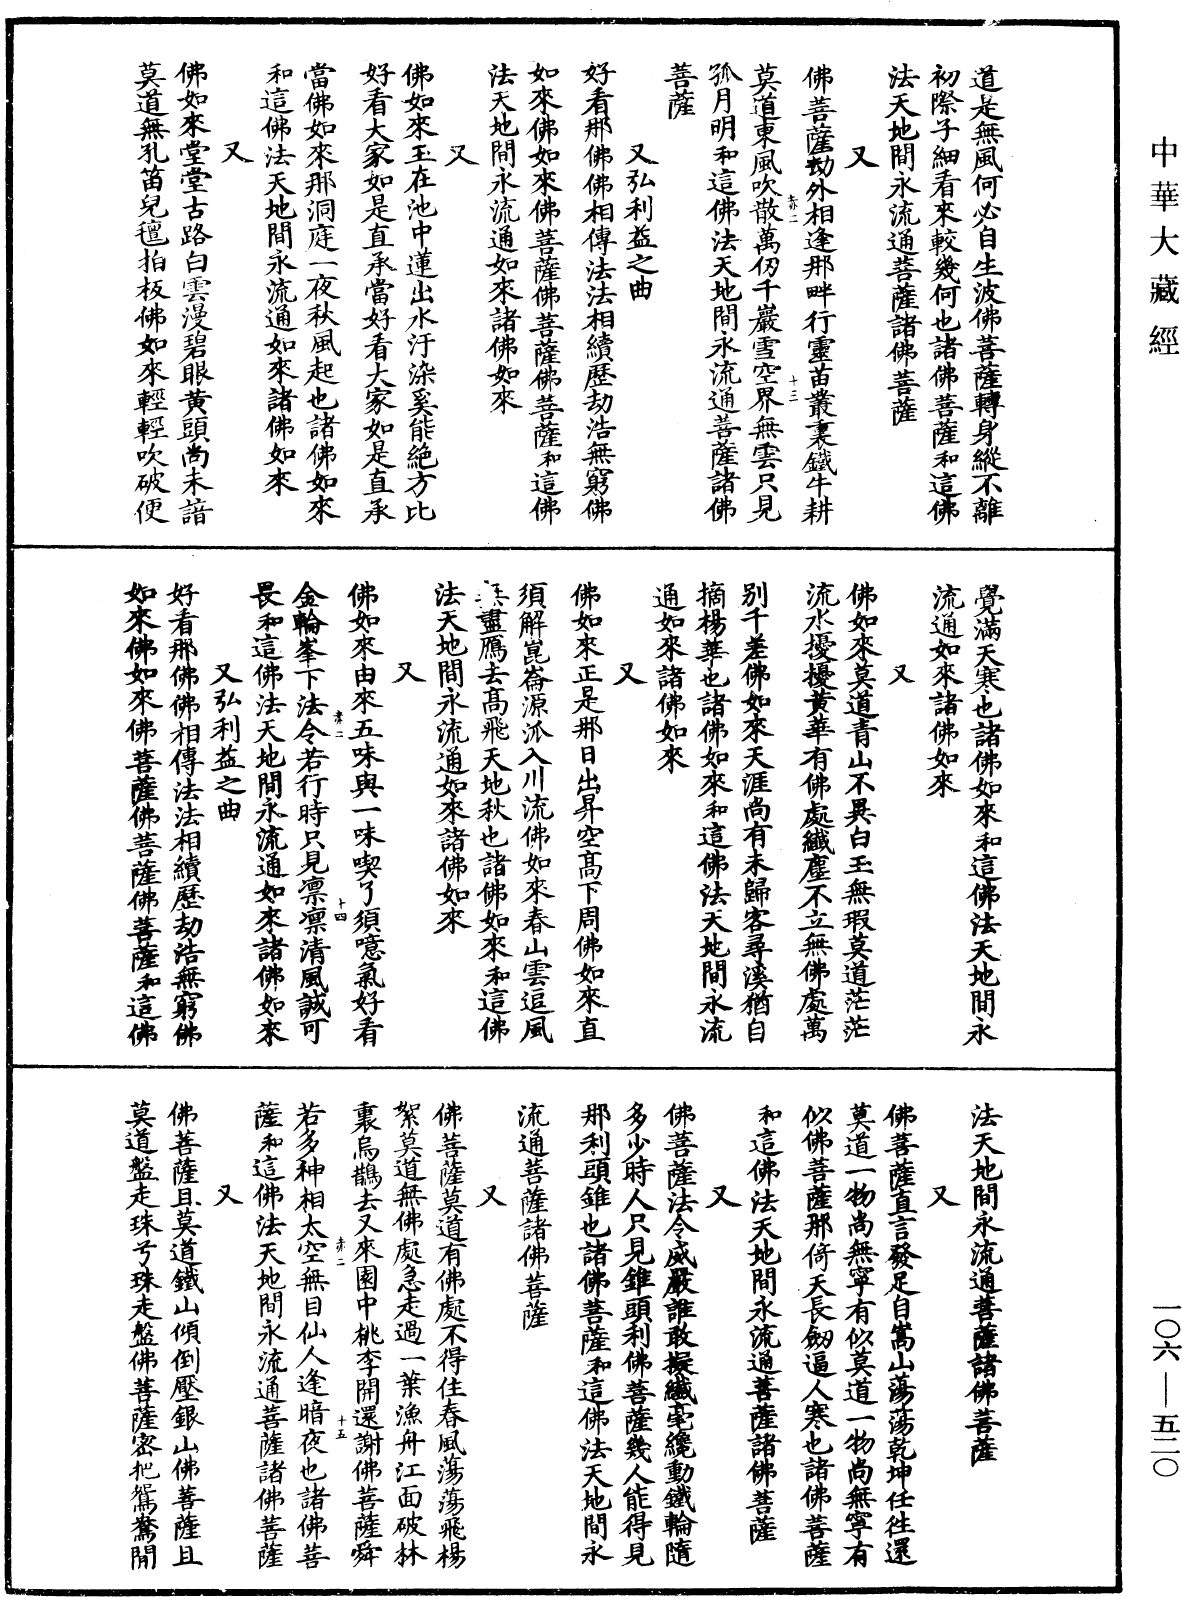 中華大藏經
道是無風何必自生波佛菩薩轉身縱不離
初際子細看來較幾何也諸佛菩薩和這佛
法天地間永流通菩薩諸佛菩薩
又
佛菩薩劫外相逢那畔行靈苗叢裏鐵牛耕
赤二
十三
莫道東風吹散萬仞千巖雪空界無雲只見
孤月明和這佛法天地間永流通菩薩諸佛
菩薩
又弘利益之曲
好看那佛佛相傳法法相續歷劫浩無窮佛
如來佛如來佛菩薩佛菩薩佛菩薩和這佛
法天地間永流通如來諸佛如來
又
佛如來玉在池中蓮出水汙染奚能絕方比
好看大家如是直承當好看大家如是直承
當佛如來那洞庭一夜秋風起也諸佛如來
和這佛法天地間永流通如來諸佛如來
又
佛如來堂堂古路白雲漫碧眼黄頭尚未諳
莫道無孔笛兒氊拍板佛如來輕輕吹破便
覺滿天寒也諸佛如來和這佛法天地間永
流通如來諸佛如來
又
佛如來莫道青山不異白玉無瑕莫道茫茫
流水擾擾黄華有佛處纖塵不立無佛處萬
別千差佛如來天涯尚有未歸客尋溪猶自
摘楊華也諸佛如來和這佛法天地間永流
通如來諸佛如來
又
佛如來正是那日出昇空高下周佛如來直
須解崑崙源派入川流佛如來春山雲逗風
無盡鴈去高飛天地秋也諸佛如來和這佛
法天地間永流通如來諸佛如來
又
佛如來由來五味與一味喫了須噫氣好看
金輪峯下法令若行時只見凛凛清風誠可
赤二
十四
畏和這佛法天地間永流通如來諸佛如來
又弘利益之曲
好看那佛佛相傳法法相續歷劫浩無窮佛
如來佛如來佛菩薩佛菩薩佛菩薩和這佛
法天地間永流通菩薩諸佛菩薩
又
佛菩薩直言發足自嵩山蕩蕩乾坤任往還
莫道一物尚無寧有似莫道一物尚無寧有
似佛菩薩那倚天長劒逼人寒也諸佛菩薩
和這佛法天地間永流通菩薩諸佛菩薩
又
佛菩薩法令威嚴誰敢擬纖毫纔動鐵輪隨
多少時人只見錐頭利佛菩薩幾人能得見
那利頭錐也諸佛菩薩和這佛法天地間永
流通菩薩諸佛菩薩
又
佛菩薩莫道有佛處不得住春風蕩蕩飛楊
絮莫道無佛處急走過一葉漁舟江面破林
裏烏鵲去又來園中桃李開還謝佛菩薩舜
若多神相太空無目仙人逢暗夜也諸佛菩
赤二
十五
薩和這佛法天地間永流通菩薩諸佛菩薩
又
佛菩薩且莫道鐵山傾倒壓銀山佛菩薩且
莫道盤走珠兮珠走盤佛菩薩密把鴛鴦閉
一〇六—五二〇